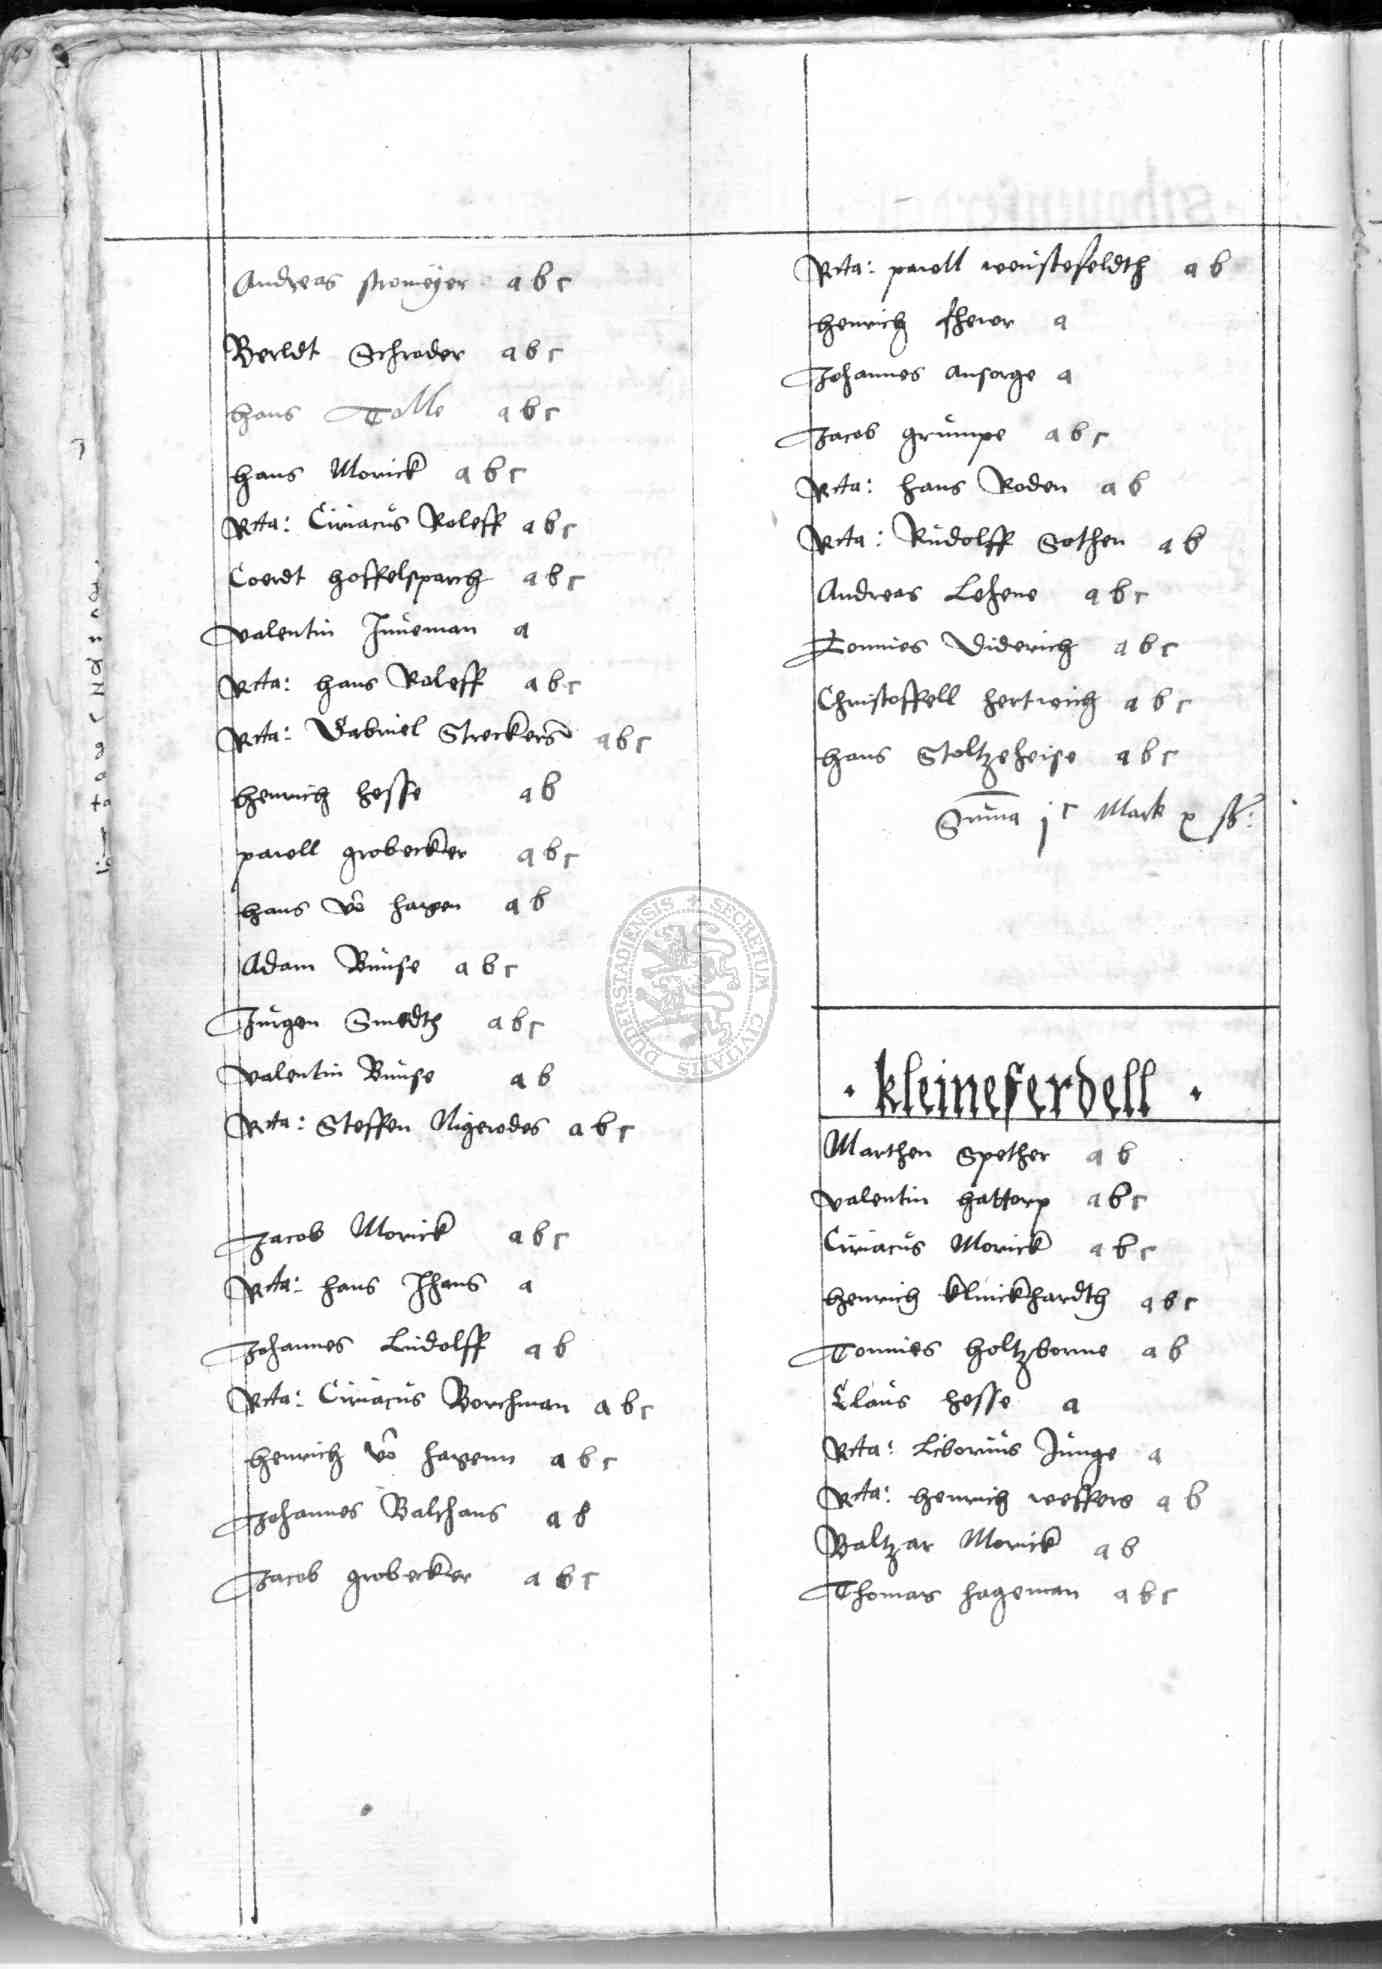 Andreas stromeyer a b c
Berldt Schroder a b c
hans Tolle a b c
hans Morick a b c
Rcta: Ciriacus Roleff a b c
Coerdt hoffelsparch a b c
valentin Inneman a
Rcta: hans Roleff a b c
Rcta: Gabriel Streckers a b c
henrich hesse a b
pawell grobecker a b c
hans vo hagen a b
Adam Bunse a b c
Jurgen Smedth a b c
valentin Bunse a b
Rcta: Steffen Nigerodes a b c
Jacob Morick a b c
Rcta: hans Jhans a
Johannes Ludolff a b
Rcta: Ciriacus Borchman a b c
henrich vo hagenn a b c
Johannes Balthans a b
Jacob grobecker a b c
Rcta: pawell weustefeldth a b
henrich fherer a
Johannes Ansorge a
Jacob grumpe a b c
Rcta: hans Roden a b
Rcta: Rudolff Sothen a b
Andreas Lehene a b c
Tonnies Diderich a b c
Christoffell hertwich a b c
hans Stoltzeheise a b c
Suma j c Mark x ß:
· kleineferdell ·
Marthen Spether a b
valentin hattorp a b c
Ciriacus Morick a b c
henrich klinckhardth a b c
Tonnies holtzborne a b
Claus hesse a
Rcta: Liborius Junge a
Rcta: henrich weffers a b
Baltzar Morick a b
Thomas hageman a b c
SECRETUM CIVITATIS DUDERSTADIENSIS